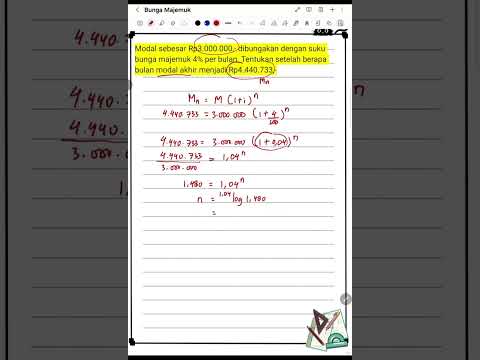 Bunga Majemuk
Modal sebesar Rp3.000.000,- dibungakan dengan suku
bunga majemuk 4% per bulan. Tentukan setelah berapa
bulan modal akhir menjadi Rp4.440.733,-
Mn
Mn = M (1+i)^n
4.440.733 = 3.000.000 (1 + 4/100)^n
4.440.733 = 3.000.000 (1 + 0,04)^n
4.440.733 / 3.000.000 = 1,04^n
1,480 = 1,04^n
n = ^1,04 log 1,480
=